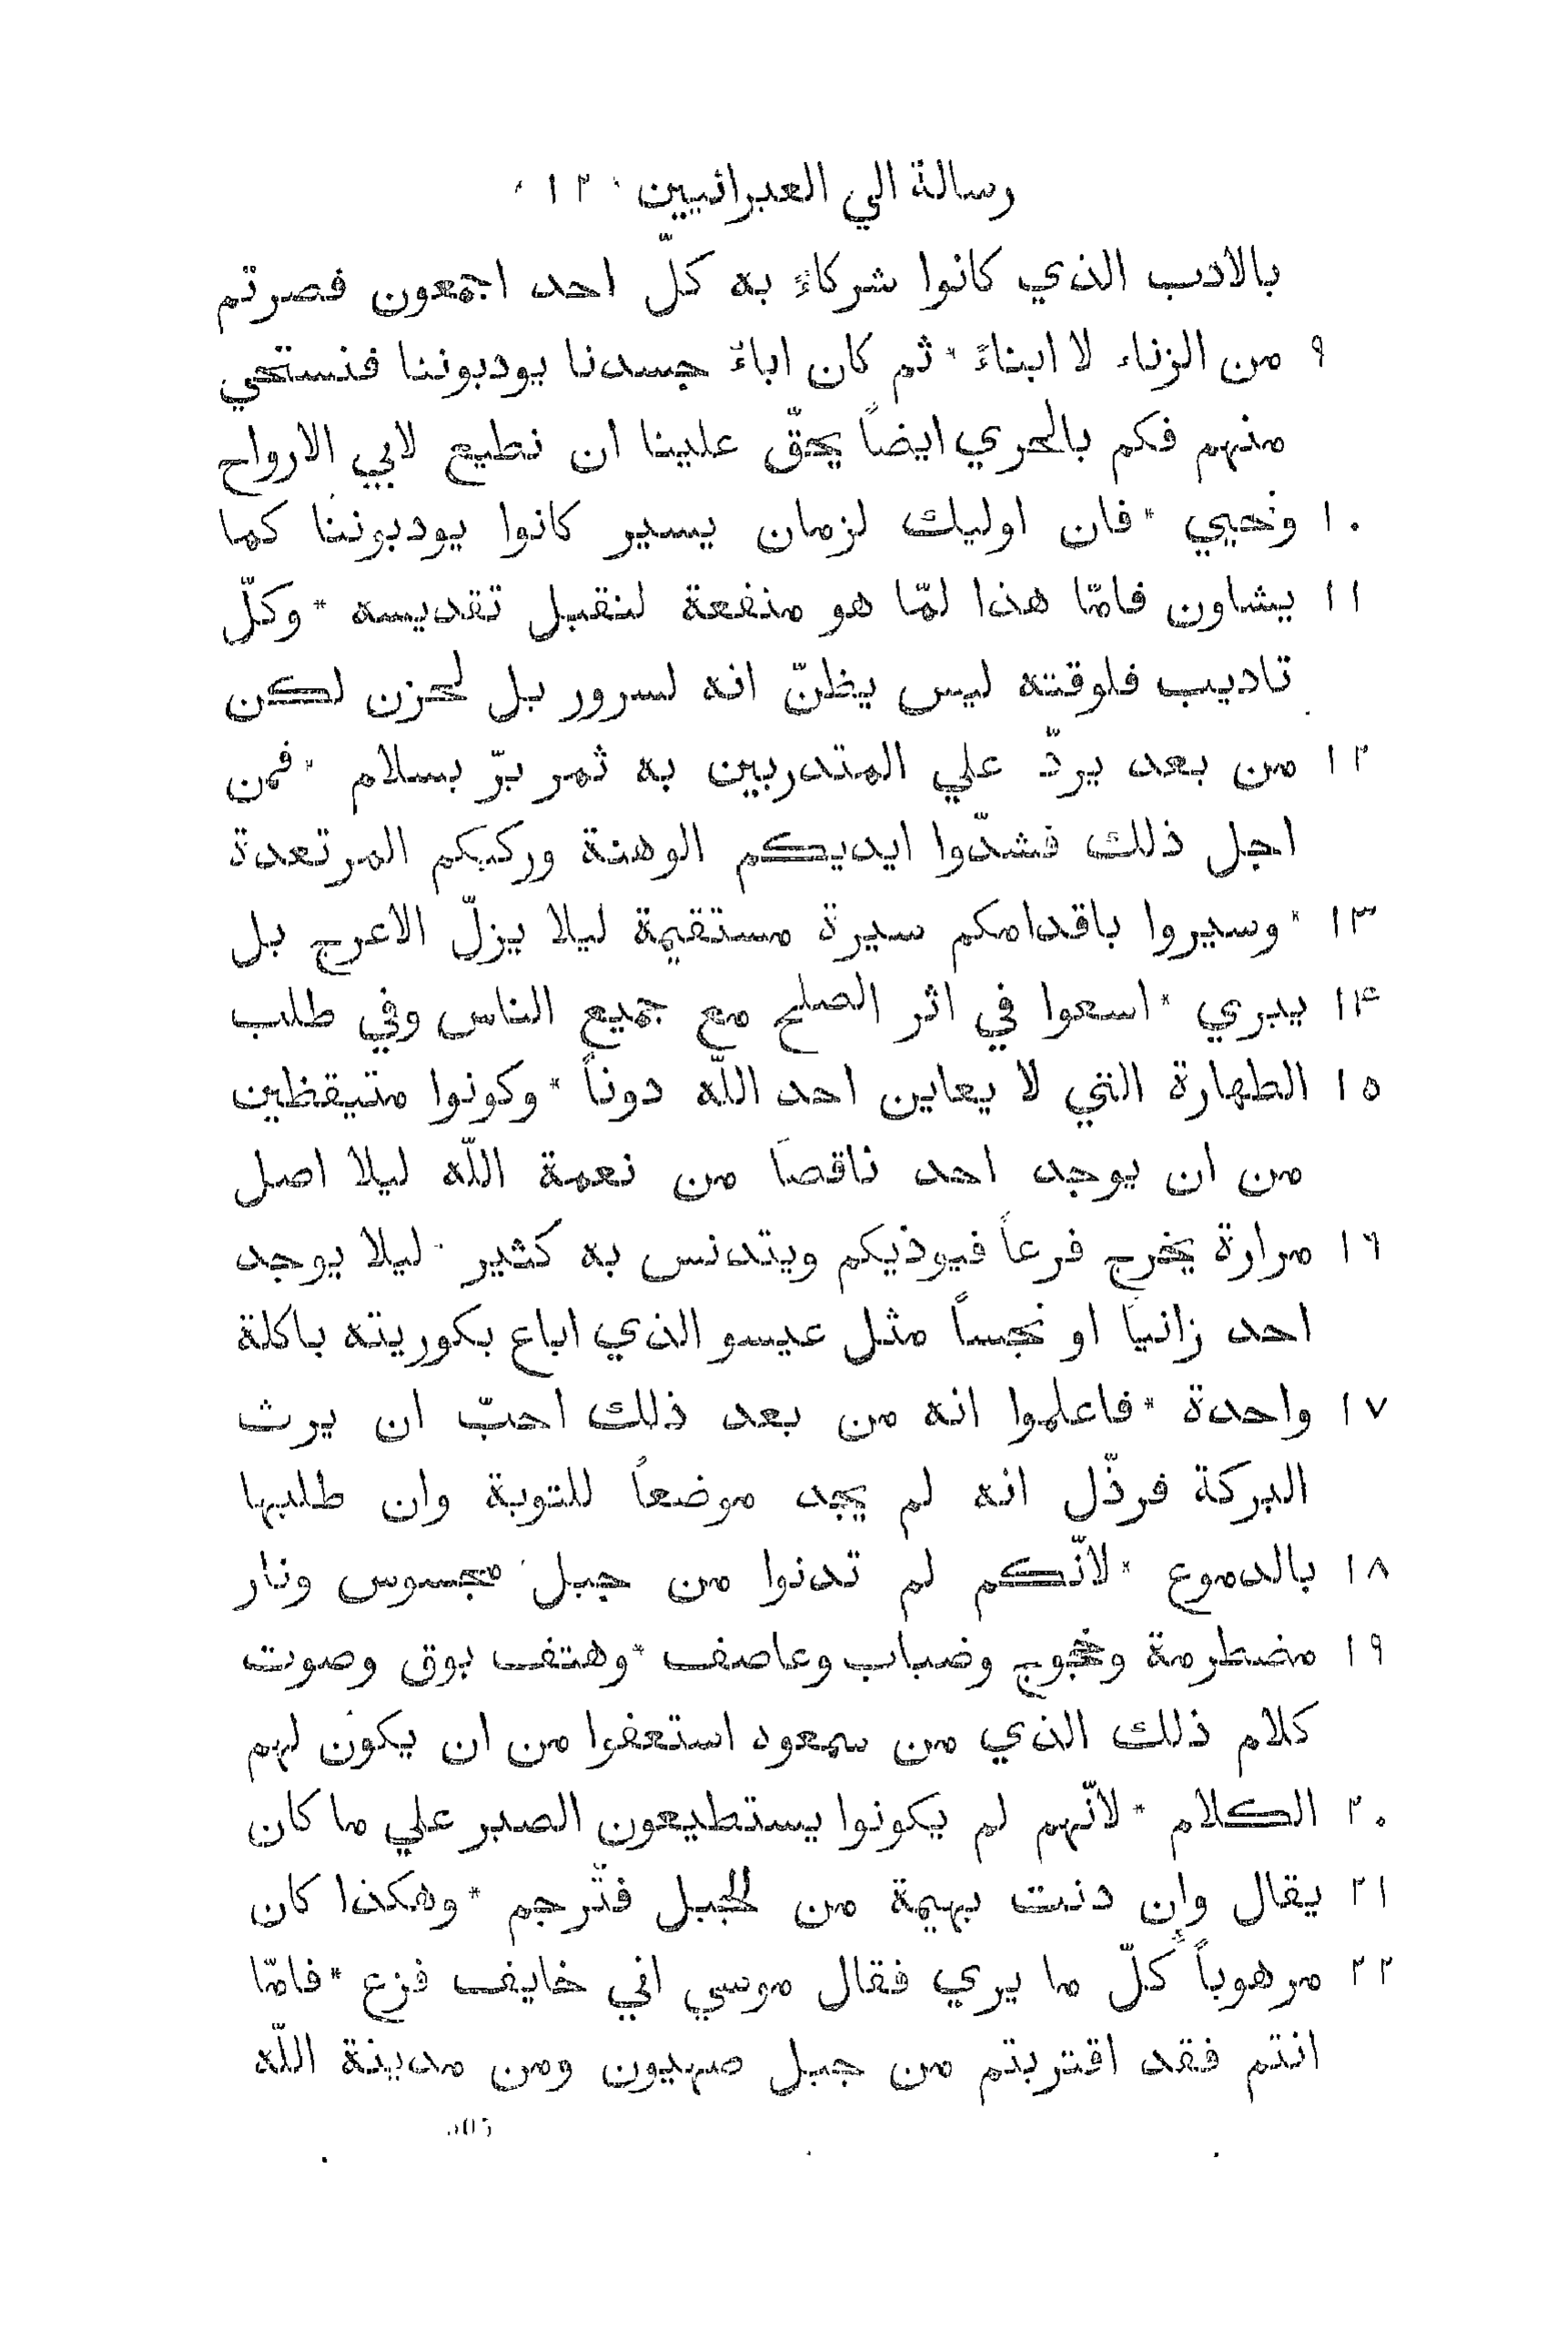 رسالة الي العبرانيين ١٢
بالادب الذي كانوا شركاءً به كلّ احد اجمعون فصرتم
٩ من الزناء لا ابناءً * ثم كان اباءٌ جسدنا يودبوننا فنستحي
منهم فكم بالحري ايضاً يحقّ علينا ان نطيع لابي الارواح
١٠ ونحيي * فان اوليك لزمان يسير كانوا يودبوننا كما
١١ يشاون فامّا هذا لمّا هو منفعة لنقبل تقديسه * وكلّ
تاديب فلوقته ليس يظنّ انه لسرور بل لحزن لكن
١٢ من بعد يردّ علي المتدربين به ثمر برّ بسلام * فمن
اجل ذلك فشدّوا ايديكم الوهنة وركبكم المرتعدة
١٣ * وسيروا باقدامكم سيرة مستقيمة ليلا يزلّ الاعرج بل
١٤ يبري * اسعوا في اثر الصلح مع جميع الناس وفي طلب
١٥ الطهارة التي لا يعاين احد اللّه دوناً * وكونوا متيقظين
من ان يوجد احد ناقصاً من نعمة اللّه ليلا اصل
١٦ مرارة يخرج فرعاً فيوذيكم ويتدنس به كثير * ليلا يوجد
احد زانياً او نجساً مثل عيسو الذي اباع بكوريته باكلة
١٧ واحدة * فاعلموا انه من بعد ذلك احبّ ان يرث
البركة فرذّل انه لم يجد موضعاً للتوبة وان طلبها
١٨ بالدموع * لانّكم لم تدنوا من جبل مجسوس ونار
١٩ مضطرمة وضباب وعاصف * وهتف بوق وصوت
كلام ذلك الذي من سمعوه استعفوا من ان يكون لهم
٢٠ الكلام * لانّهم لم يكونوا يستطيعون الصبر علي ما كان
٢١ يقال وان دنت بهيمة من الجبل فتُرجم * وهكذا كان
٢٢ مرهوباً كلّ ما يري فقال موسي اني خايف فزع * فامّا
انتم فقد اقتربتم من جبل صهيون ومن مدينة اللّه